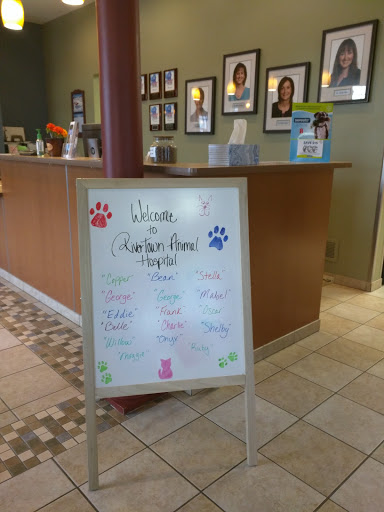 Welcome
to
Rivertown Animal
Hospital
"Copper" "Bean" "Stella"
"George" "George" "Mabel"
"Eddie" "Frank" "Oscar"
"Belle" "Charlie" "Shelby"
"Willow" "Onyx" "Ruby"
"Maggie"